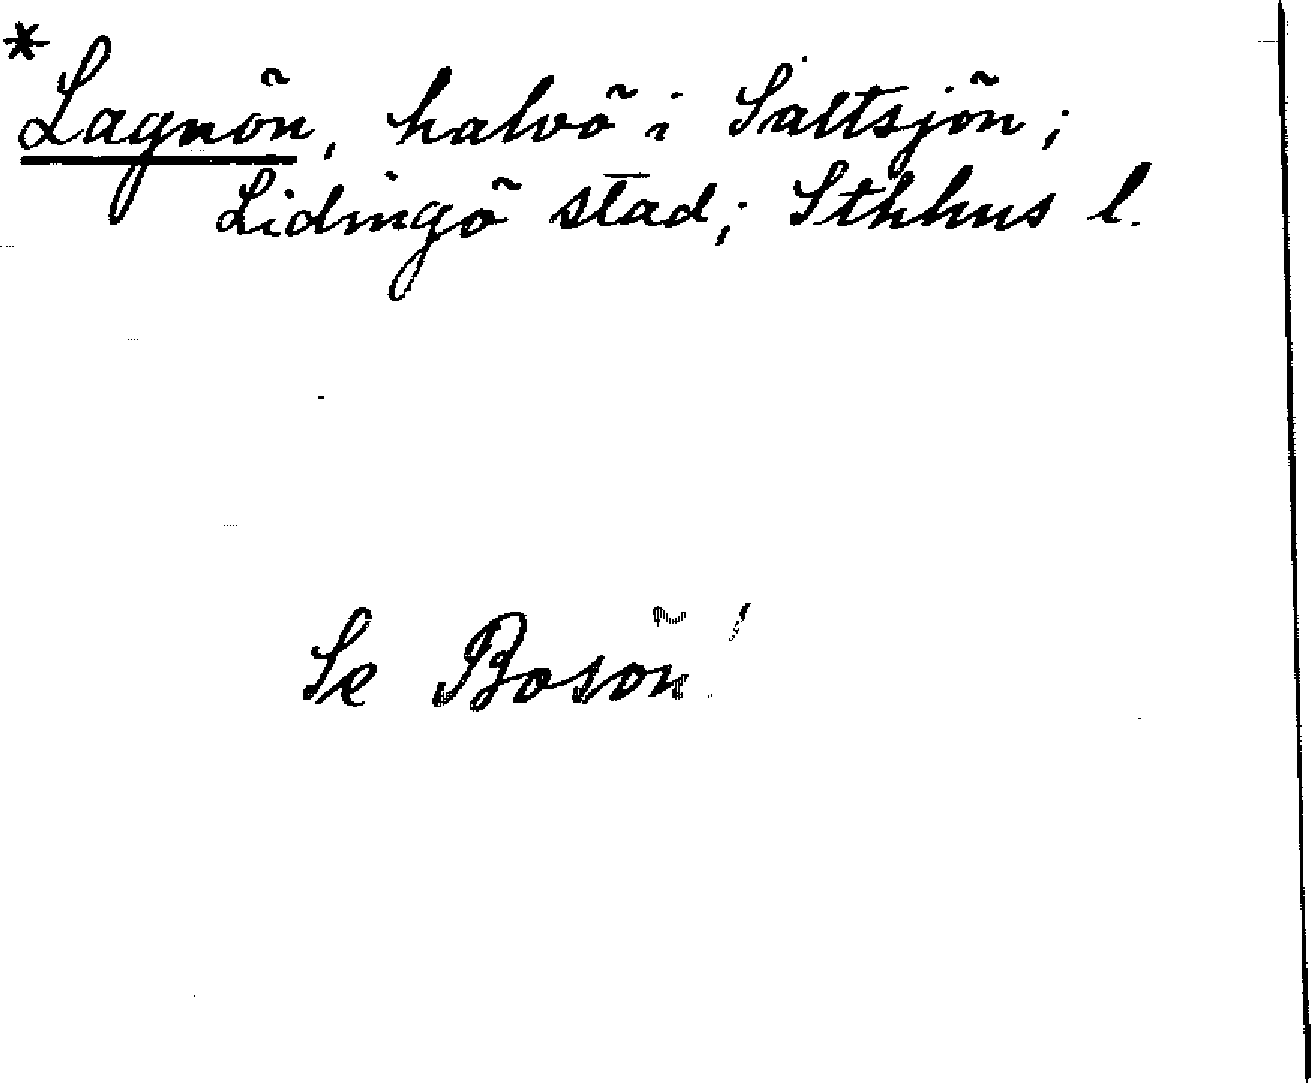 *Lagnön, halvö i Saltsjön;
Lidingö stad; Sthlms l.
Se Bosön!